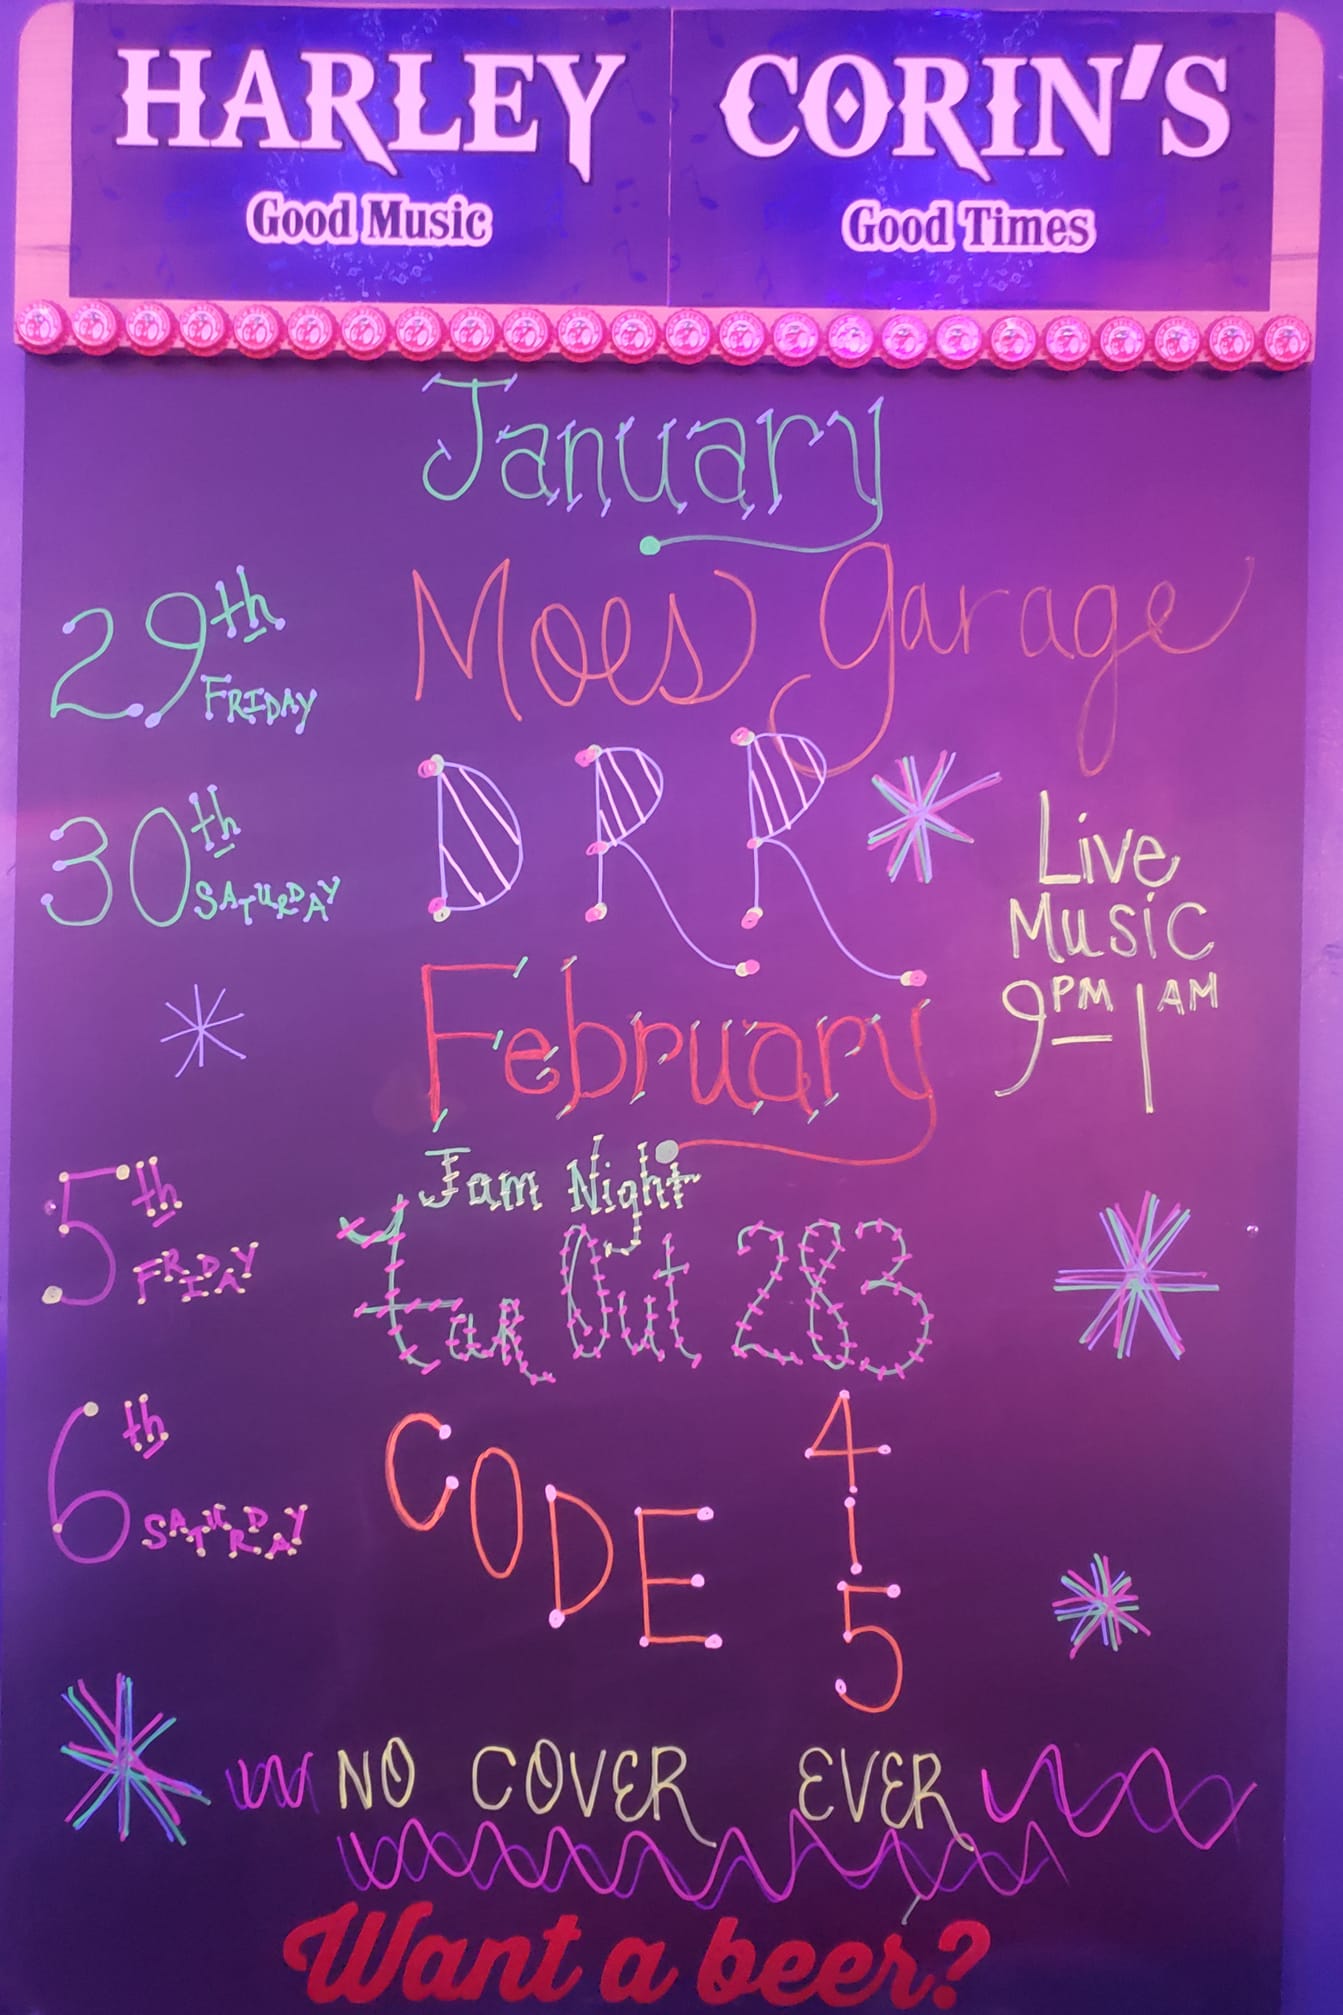 HARLEY CORIN'S
Good Music Good Times
January
29th FRIDAY Moes garage
30th SATURDAY DRR
Live
Music
9PM - 1AM
February
Jam Night
5th FRIDAY Tar Out 283
6th SATURDAY CODE 415
NO COVER EVER
Want a beer?